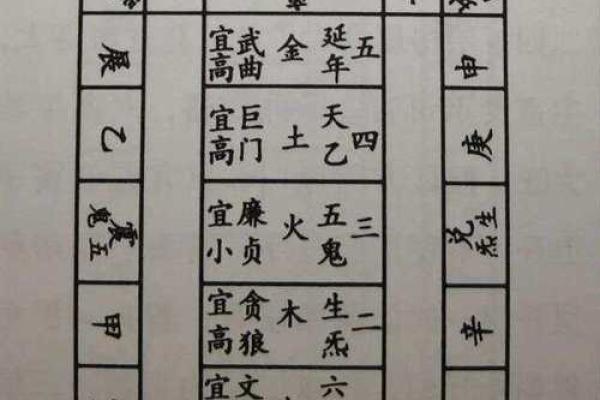 申
庚
兑生炁
辛
五
延年
金
武曲
宜高
四
天乙
土
巨门
宜高
三
五鬼
火
廉贞
宜小
二
生炁
木
贪狼
宜高
六
文
宜
辰
乙
震五鬼
甲